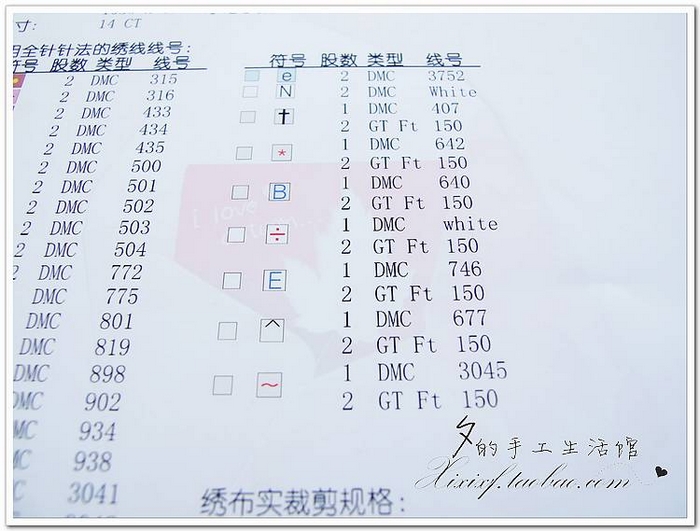 寸: 14 CT
用全针针法的绣线线号:
符号 股数 类型 线号
2 DMC 315
2 DMC 316
2 DMC 433
2 DMC 434
2 DMC 435
2 DMC 500
2 DMC 501
2 DMC 502
2 DMC 503
2 DMC 504
2 DMC 772
DMC 775
DMC 801
DMC 819
DMC 898
DMC 902
MC 934
MC 938
MC 3041
符号 股数 类型 线号
e 2 DMC 3752
N 2 DMC White
† 1 DMC 407
2 GT Ft 150
* 1 DMC 642
2 GT Ft 150
B 1 DMC 640
2 GT Ft 150
÷ 1 DMC white
2 GT Ft 150
E 1 DMC 746
2 GT Ft 150
^ 1 DMC 677
2 GT Ft 150
~ 1 DMC 3045
2 GT Ft 150
绣布实裁剪规格:
i love
夕的手工生活馆
Xixixf.taobao.com